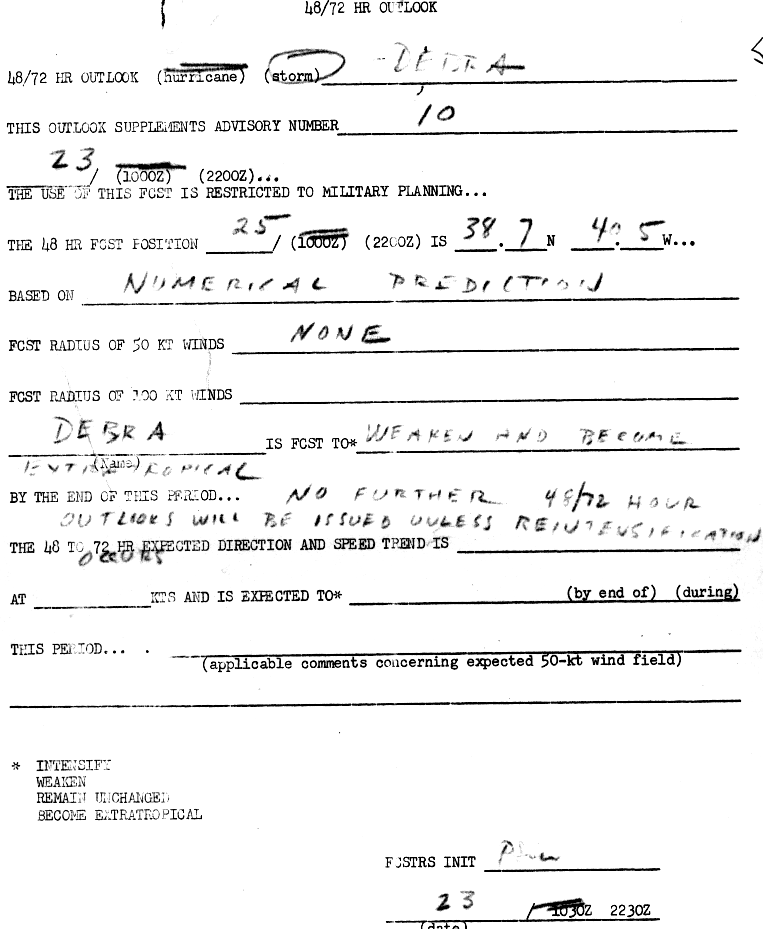 48/72 HR OUTLOOK
48/72 HR OUTLOOK (hurricane) (storm) DEBRA
THIS OUTLOOK SUPPLEMENTS ADVISORY NUMBER 10
23/ (1000Z) (2200Z)...
THE USE OF THIS FCST IS RESTRICTED TO MILITARY PLANNING...
THE 48 HR FCST POSITION 25/ (1000Z) (2200Z) IS 38.7 N 40.5 W...
BASED ON NUMERICAL PREDICTION
FCST RADIUS OF 50 KT WINDS NONE
FCST RADIUS OF 100 KT WINDS
DEBRA IS FCST TO* WEAKEN AND BECOME
(Name)
BY THE END OF THIS PERIOD... NO FURTHER 48/72 HOUR
OUTLOOKS WILL BE ISSUED UNLESS REINTENSIFICATION
THE 48 TO 72 HR EXPECTED DIRECTION AND SPEED TREND IS
OCCURS
AT KTS AND IS EXPECTED TO* (by end of) (during)
THIS PERIOD... .
(applicable comments concerning expected 50-kt wind field)
* INTENSIFY
WEAKEN
REMAIN UNCHANGED
BECOME EXTRATROPICAL
FCSTRS INIT
23 / 1030Z 2230Z
(date)